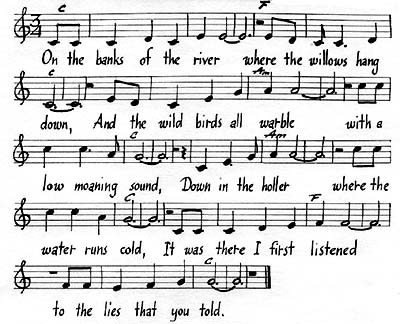 C F
3/4
On the banks of the river where the willows hang
C Am
down, And the wild birds all warble with a
C Am
low moaning sound, Down in the holler where the
C F
water runs cold, It was there I first listened
C
to the lies that you told.